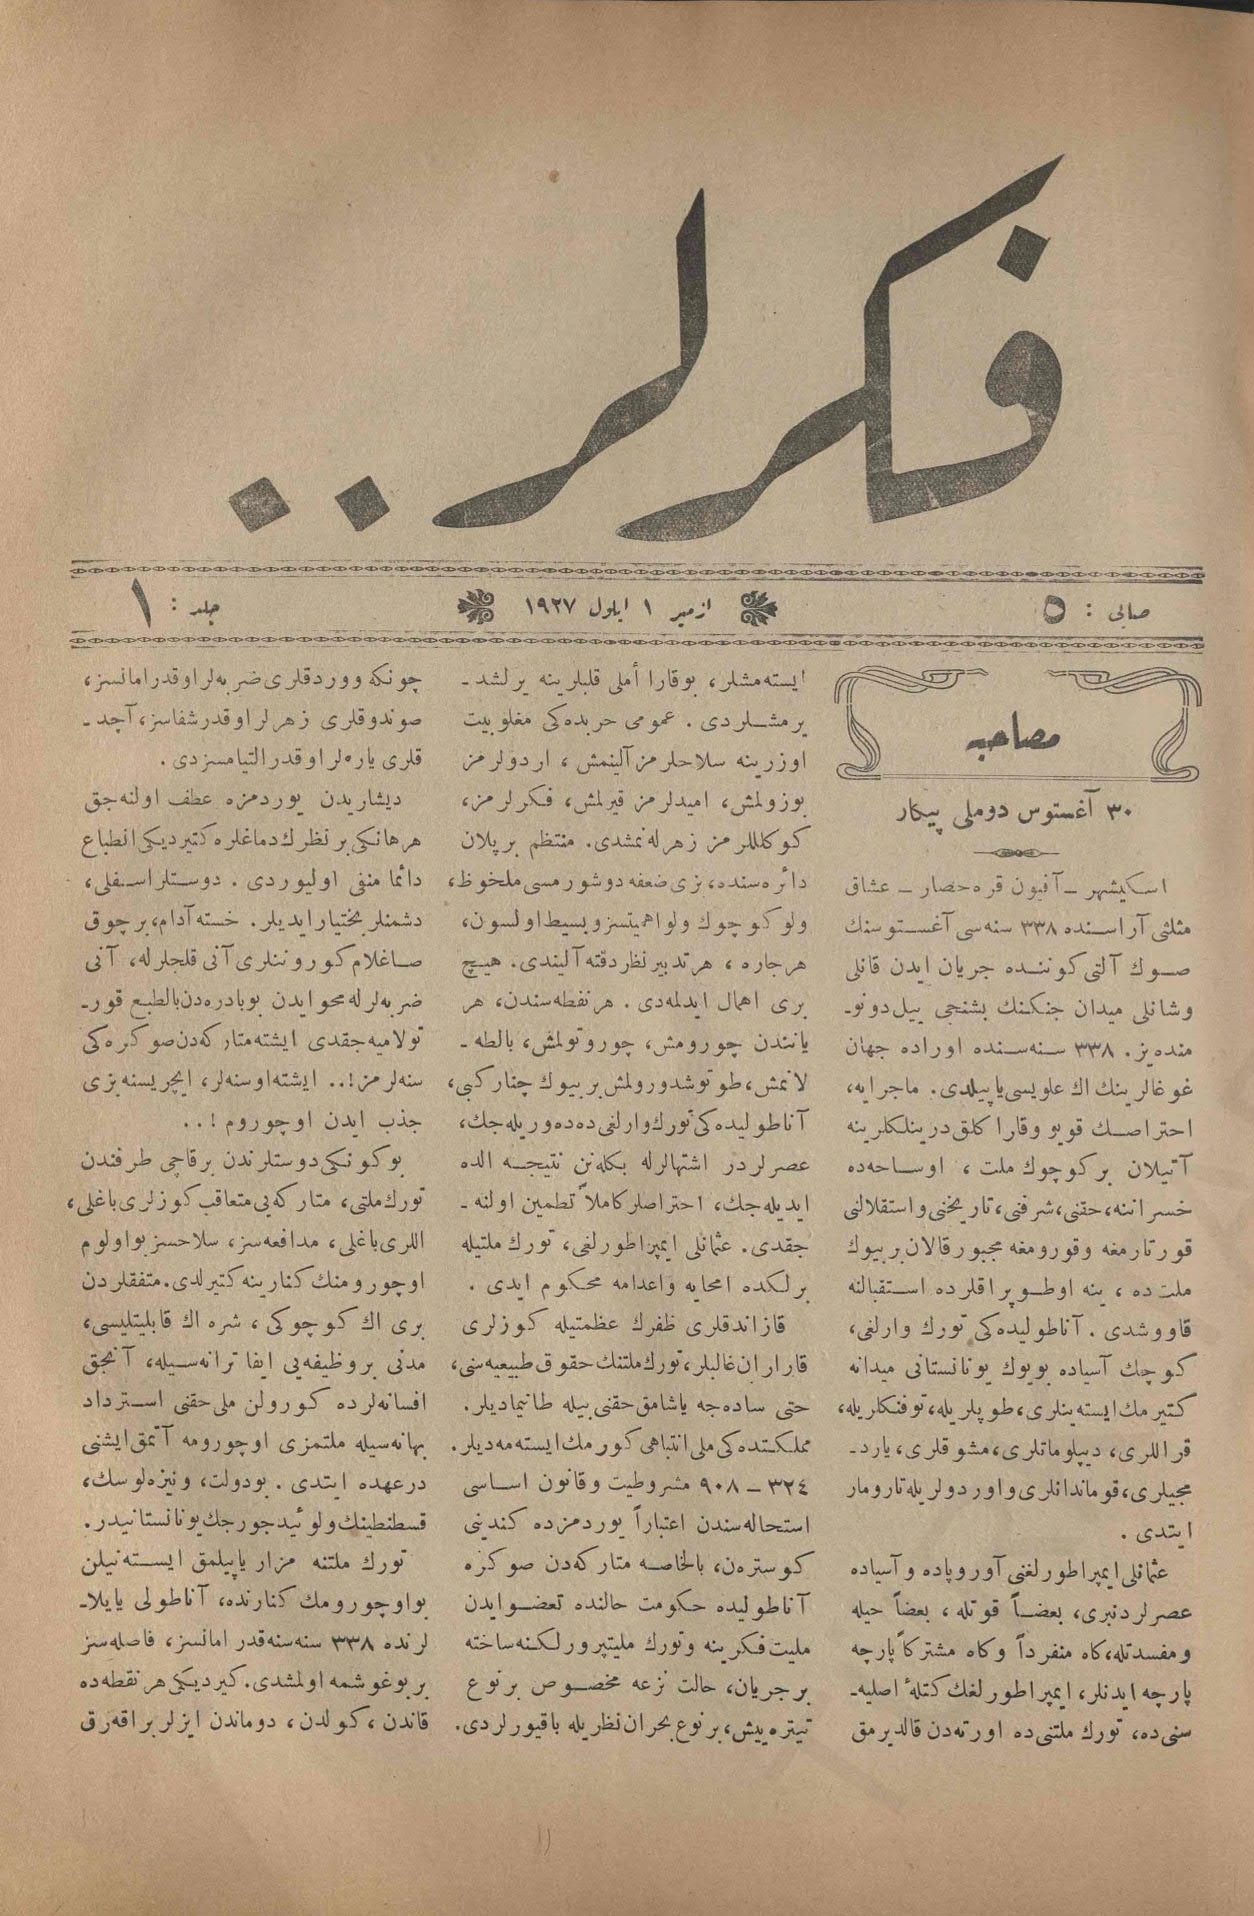 فكرلر..
صايى : ٥
ازمير ١ ايلول ١٩٢٧
جلد : ١
مصاحبه
٣٠ آغستوس دوملى پيكار
اسكيشهر ــ آفيون قره حصار ــ عشاق
مثلثى آراسنده ٣٣٨ سنه سى آغستوسنك
صوك آلتى كوننده جريان ايدن قانلى
وشانلى ميدان جنكنك بشنجى ييل دونو-
منده يز. ٣٣٨ سنه سنده اوراده جهان
غوغالرينك اك علويسى ياپيلدى. ماجرايه،
احتراصك قويو وقارا كلق درينلكلرينه
آتيلان بر كوچوك ملت ، اوساحه ده
خسراننه، حقنى، شرفنى، تاريخنى واستقلالنى
قورتارمغه وقورومغه مجبور قالان بر بيوك
ملت ده ، ينه اوطوپراقلرده استقبالنه
قاووشدى . آناطوليده كى تورك وارلغى،
كوچك آسياده بويوك يونانستانى ميدانه
كتيرمك ايسته ينلرى، طوپلريله، توفنكلريله،
قراللرى، ديپلوماتلرى، مشوقلرى، يارد-
مجيلرى، قومماندانلرى واوردولريله تارومار
ايتدى .
عثمانلى ايمپراطورلغنى آوروپاده وآسياده
عصرلردنبرى، بعضاً قوتله ، بعضاً حيله
ومفسدتله، كاه منفرداً وكاه مشتركاً پارچه
پارچه ايدنلر، ايمپراطورلغك كتلهٔ اصليه-
سنى ده، تورك ملتنى ده اورته دن قالديرمق
ايسته مشلر، بوقارا أملى قلبلرينه يرلشد-
يرمشلردى . عمومى حربده كى مغلوبيت
اوزرينه سلاحلرمز آلينمش ، اردولرمز
بوزولمش، اميدلرمز قيرلمش، فكرلرمز،
كوكللرمز زهرله نمشدى. منتظم بر پلان
دائره سنده، بزى ضعفه دوشورمسى ملحوظ،
ولو كوچوك ولو اهميتسز وبسيط اولسون،
هر چاره ، هر تدبير نظر دقته آليندى. هيچ
برى اهمال ايدلمه دى . هر نقطه سندن، هر
ياننندن چورومش، چوروتولمش، بالطه-
لانمش، طوتوشدورولمش بر بيوك چنار كبى،
آناطوليده كى تورك وارلغى ده ده وريله جك،
عصرلردر اشتهالرله بكله نن نتيجه الده
ايديله جك، احتراصلر كاملاً تطمين اولنه-
جقدى. عثمانلى ايمپراطورلغى، تورك ملتيله
برلكده امحايه واعدامه محكوم ايدى .
قازاندقلرى ظفرك عظمتيله كوزلرى
قارار ان غالبلر، تورك ملتنك حقوق طبيعيه سنى،
حتى ساده جه ياشامق حقنى بيله طانيماديلر.
مملكتده كى ملى انتباهى كورمك ايسته مه ديلر.
٣٢٤ ــ ٩٠٨ مشروطيت وقانون اساسى
استحاله سندن اعتباراً يوردمزده كندينى
كوسترەن، بالخاصه متاركه دن صوكره
آناطوليده حكومت حالنده تعضو ايدن
مليت فكرينه وتورك مليتپرورلكنه ساخته
بر جريان، حالت نزعه مخصوص بر نوع
تيتره ييش، بر نوع بحران نظريله باقيورلردى.
چونكه ووردقلرى ضربه لر اوقدر امانسز،
صوندوقلرى زهرلر اوقدر شفاسز، آچد-
قلرى ياره لر اوقدر التيامسزدى .
ديشاريدن يوردمزه عطف اولنه جق
هر هانكى بر نظرك دماغلره كتيرديكى انطباع
دائما منفى اوليوردى . دوستلر اسفلى،
دشمنلر بختيار ايديلر. خسته آدام، بر چوق
صاغلام كوروننلرى آنى قلجلرله، آنى
ضربه لرله محو ايدن بو بادره دن بالطبع قور-
تولاميه جقدى ايشته متاركه دن صوكره كى
سنه لرمز !.. ايشته اوسنه لر، ايچريسنه بزى
جذب ايدن اوچوروم !..
بوكونكى دوستلرندن بر قاچى طرفندن
تورك ملتى، متاركه يى متعاقب كوزلرى باغلى،
اللرى باغلى، مدافعه سز، سلاحسز بو اولوم
اوچورومنك كنارينه كتيرلدى. متفقلردن
برى اك كوچوكى ، شره اك قابليتليسى،
مدنى بر وظيفه يى ايفا ترانه سيله، آنجق
افسانه لرده كورولن ملى حقنى استرداد
بهانه سيله ملتمزى اوچورومه آتمق ايشنى
درعهده ايتدى . بودولت، ونيزه لوسك،
قسطنطينك ولوئيد جورجك يونانستانيدر.
تورك ملتنه مزار ياپيلمق ايسته نيلن
بو اوچورومك كنارنده، آناطولى يايلا-
لرنده ٣٣٨ سنه سنه قدر امانسز، فاصله سز
بر بوغوشمه اولمشدى. كيرديكى هر نقطه ده
قاندن ، كولدن، دوماندن ايزلر براقه رق